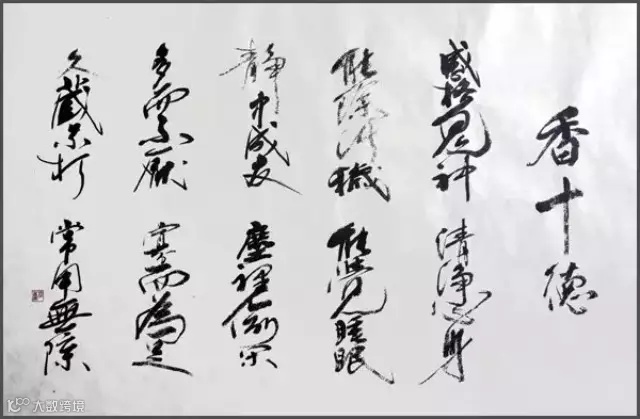 香十德
感格鬼神 清淨心身
能除污穢 能覺睡眠
静中成友 塵裡偷閑
多而不厭 寡而為足
久藏不朽 常用無障
大数跨境